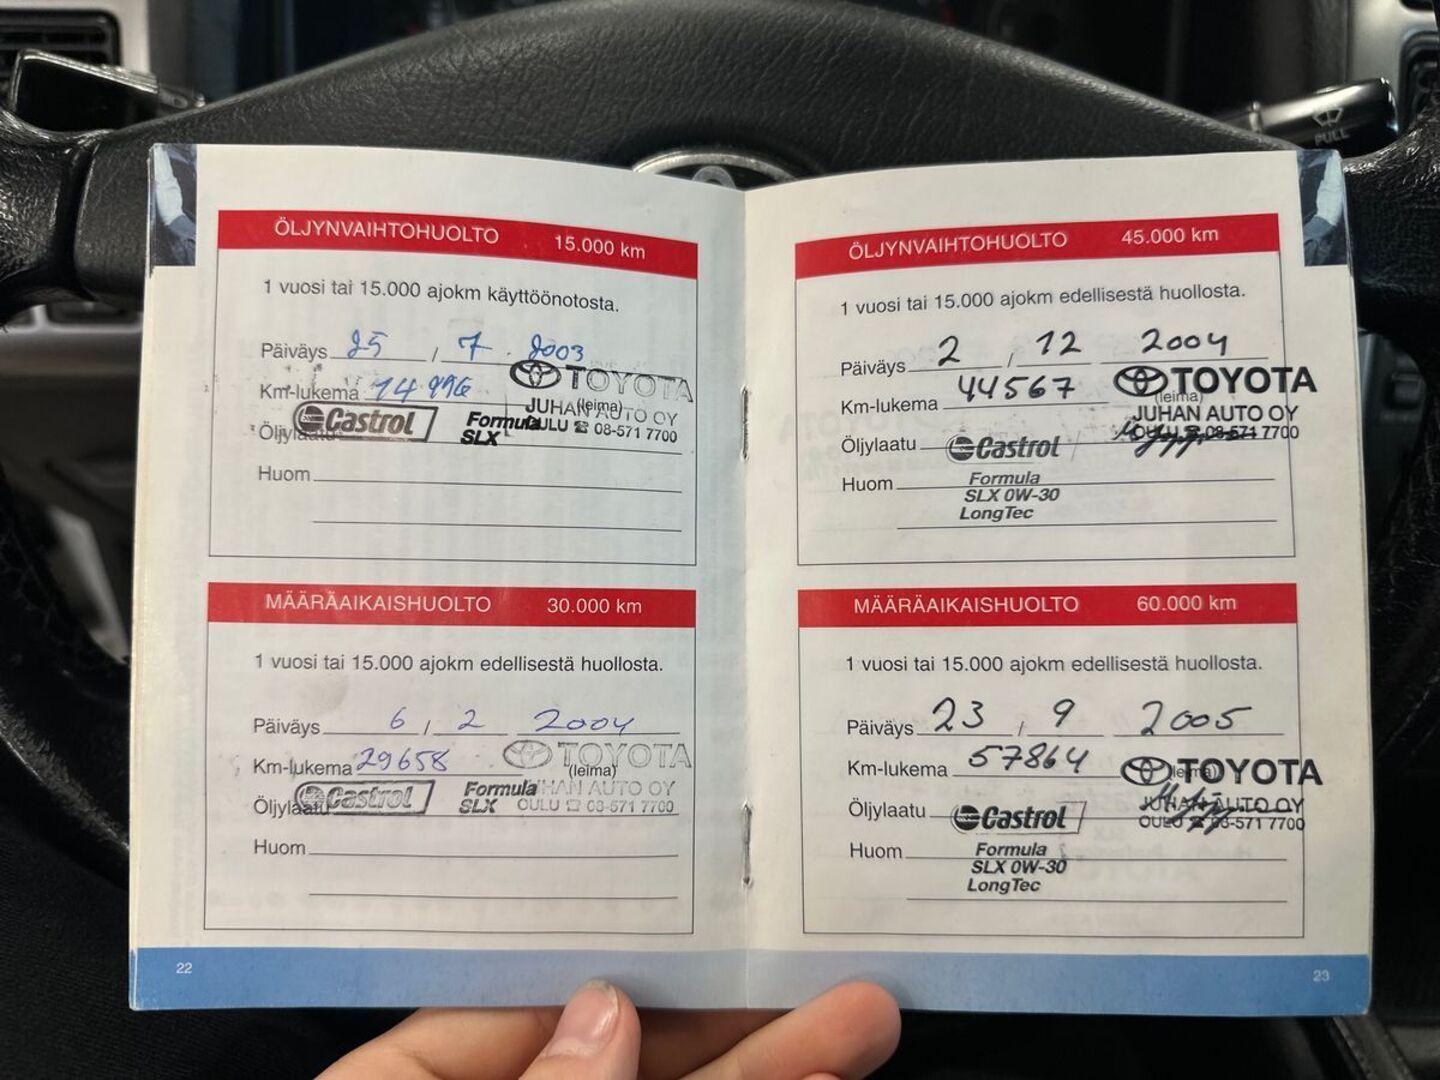 PULL
ÖLJYNVAIHTOHUOLTO 15.000 km
1 vuosi tai 15.000 ajokm käyttöönotosta.
Päiväys 25 / 7 2003
Km-lukema 14 996
TOYOTA
(leima)
JUHAN AUTO OY
OULU ☎ 08-571 7700
Öljylaatu Castrol Formula
SLX
Huom
MÄÄRÄAIKAISHUOLTO 30.000 km
1 vuosi tai 15.000 ajokm edellisestä huollosta.
Päiväys 6 / 2 2004
Km-lukema 29658
TOYOTA
(leima)
JUHAN AUTO OY
OULU ☎ 08-571 7700
Öljylaatu Castrol Formula
SLX
Huom
22
ÖLJYNVAIHTOHUOLTO 45.000 km
1 vuosi tai 15.000 ajokm edellisestä huollosta.
Päiväys 2 / 12 2004
Km-lukema 44567
TOYOTA
(leima)
JUHAN AUTO OY
OULU ☎ 08-571 7700
Öljylaatu Castrol
Huom Formula
SLX 0W-30
LongTec
MÄÄRÄAIKAISHUOLTO 60.000 km
1 vuosi tai 15.000 ajokm edellisestä huollosta.
Päiväys 23 / 9 2005
Km-lukema 57864
TOYOTA
(leima)
JUHAN AUTO OY
OULU ☎ 08-571 7700
Öljylaatu Castrol
Huom Formula
SLX 0W-30
LongTec
23